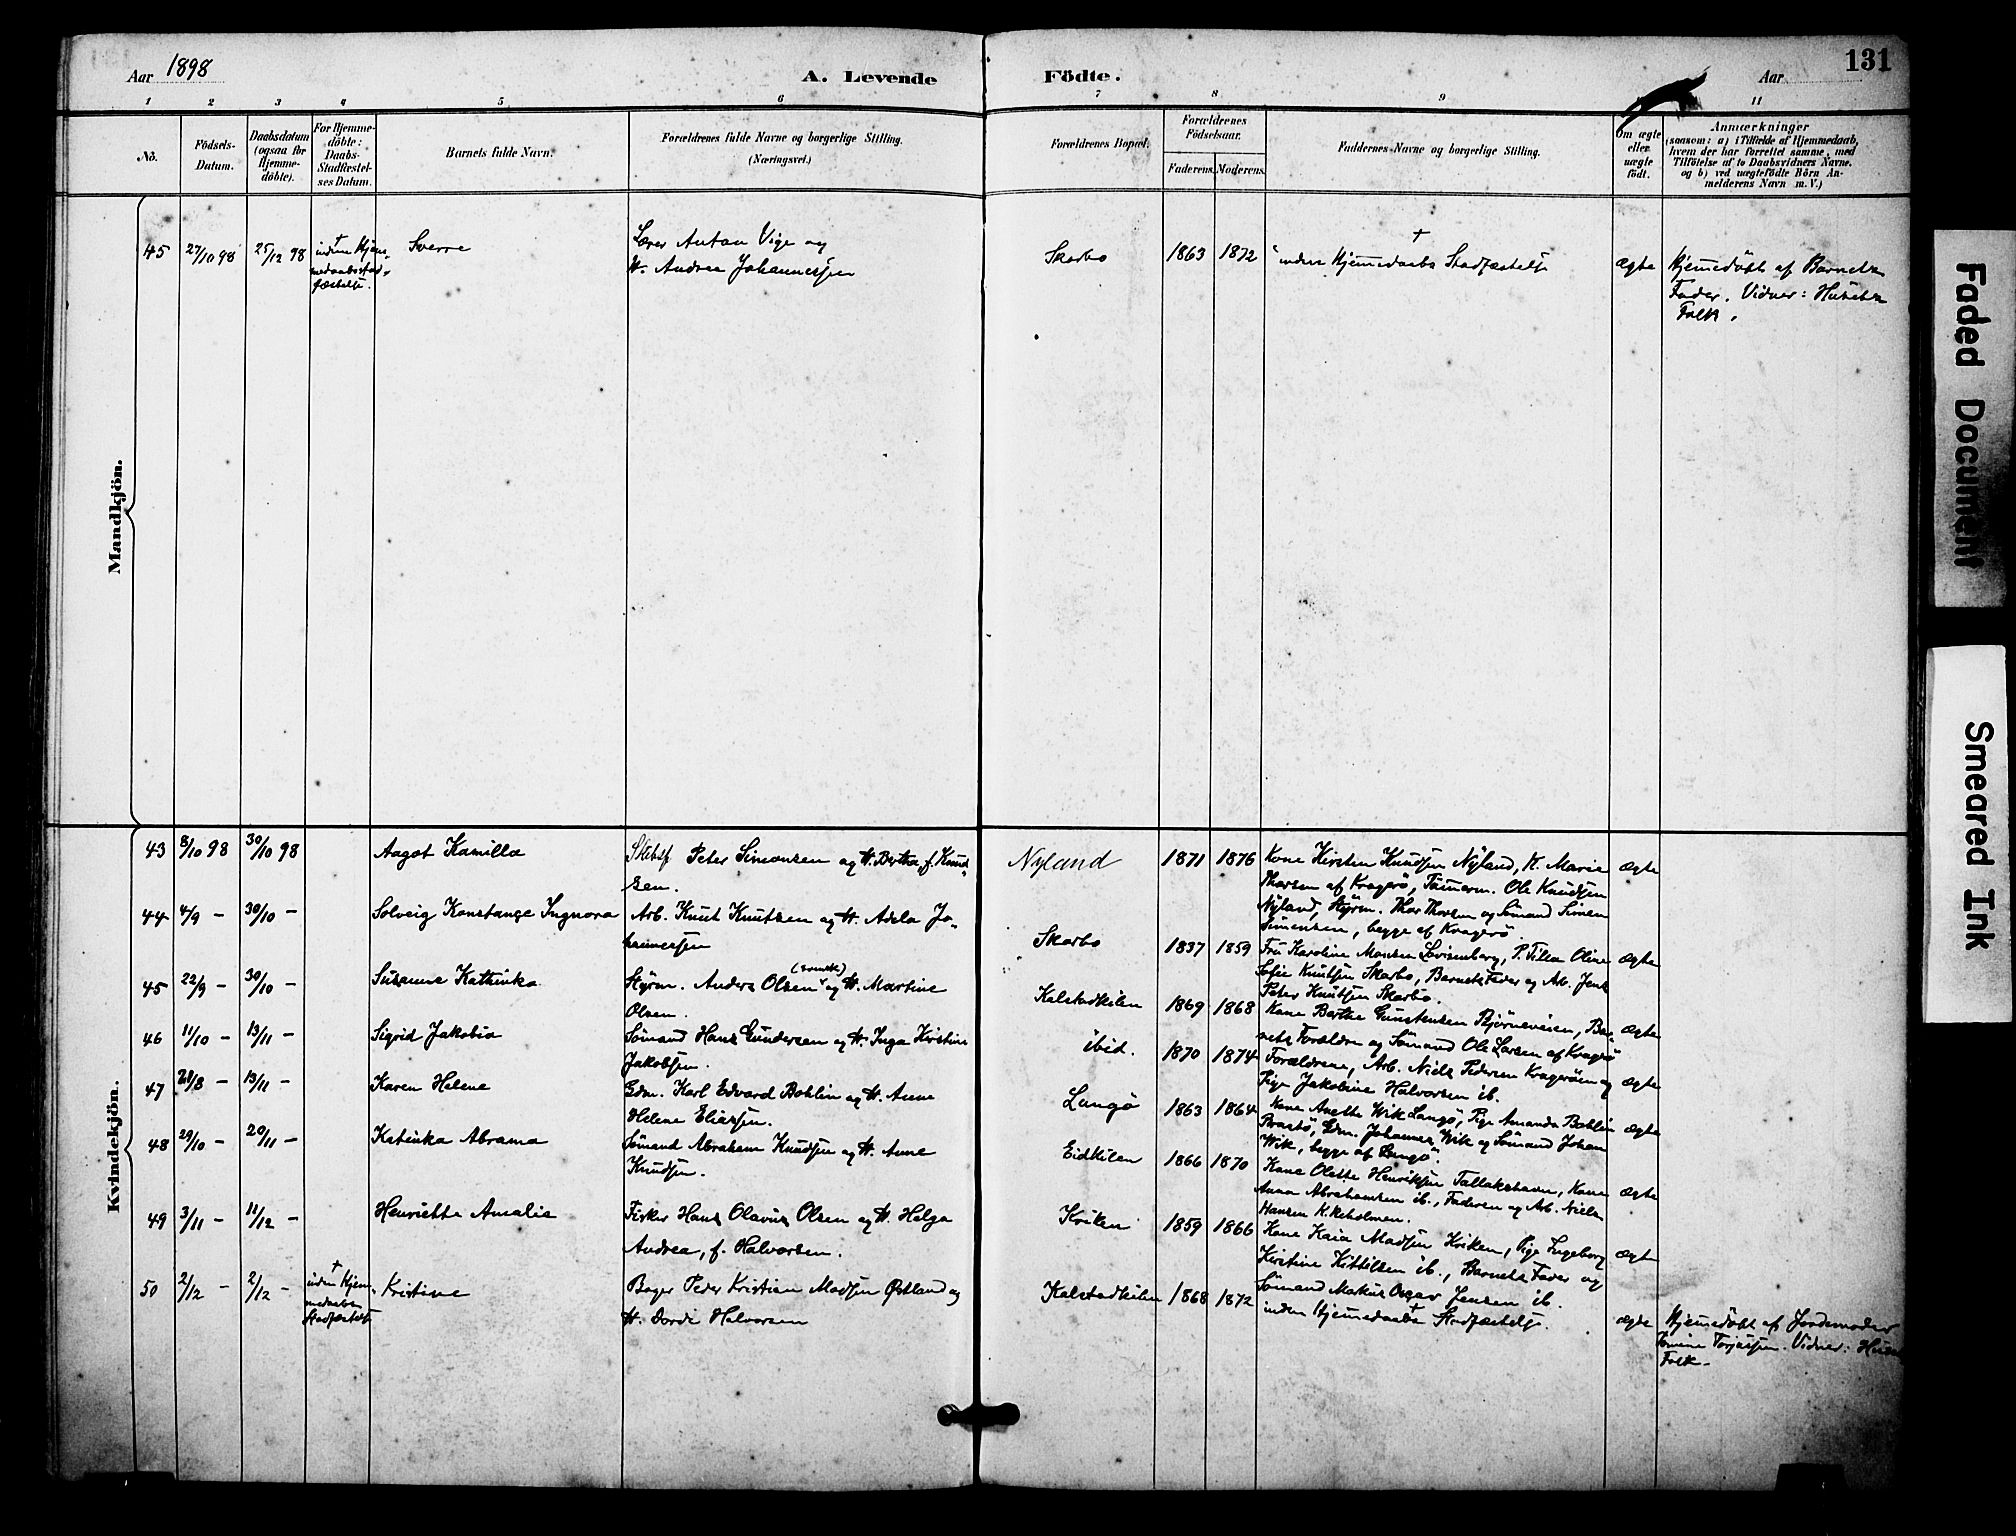 131
Aar 1898
A. Levende
Födte.
Aar
1 2 3 4 5 6 7 8 9 11
No.
Födsels-
Datum.
Daabsdatum
(ogsaa for
Hjemme-
döbte).
For Hjemme-
döbte:
Daabs-
Stadfæstel-
ses Datum.
Barnets fulde Navn.
Forældrenes fulde Navne og borgerlige Stilling.
(Næringsvei.)
Forældrenes Bopæl.
Forældrenes
Födselsaar.
Faderens. Moderens.
Faddernes Navne og borgerlige Stilling.
Om ægte
eller
uægte
født.
Anmærkninger
(saasom: a) i Tilfælde af Hjemmedaab,
hvem der har forrettet samme, med
Tilföielse af to Daabsvidners Navne.
og b) ved uægtefödte Börn An-
melderens Navn m. V.)
Mandkjön.
45 27/10 98 25/12 98 † inden Hjem-
medaabsstad-
fæstelse.
Sverre
Lærer Anton Vige og
H. Andrea Johannessen
Skarbo 1863 1872
† inden Hjemmedaabs Stadfæstelse
ægte
Hjemmedöbt af Barnets
Fader. Vidner: Husets
Folk.
Kvindekjön.
43 8/10 98 30/10 98 Aagot Kamilla
Skibsf. Peter Simonsen og H. Bertha, f. Knud-
sen.
Nyland 1871 1876
Kone Kirsten Knudsen Nyland, K. Marie
Thorsen af Kragerö, Tömerm. Ole Knudsen
Nyland, Styrm. Thor Thorsen og Sömand Simen
Simensen, begge af Kragerö.
ægte
44 4/9 – 30/10 – Solveig Konstanse Ingnora
Arb. Knut Knutsen og H. Adela Jo-
hannessen
Skarbo 1837 1859
Fru Karoline Monsen Lovisenberg, P. Tilla Oline
Sofie Knutsen Skarbo, Barnets Fader og Arb. Jens
Peter Knutsen Skarbo.
ægte
45 22/9 – 30/10 – Susanne Kathinka
Styrm. Anders Olsen (svensk) og H. Martine
Olsen.
Kalstadkilen 1869 1868
Kone Berthe Gunstensen Björneveien, Bar-
nets Forældre og Sömand Ole Larsen af Kragerö
ægte
46 11/10 – 13/11 – Sigrid Jakobia
Sömand Hans Gundersen og H. Inga Kirstine
Jakobsen.
ibid. 1870 1874
Forældrene, Arb. Niels Pedersen Kragerøen og
Pige Jakobine Halvorsen ib.
ægte
47 21/8 – 13/11 – Karen Helene
Gdm. Karl Edvard Bohlin og H. Anne
Helene Eliassen.
Langö 1863 1864
Kone Anette Wik Langö, Pige Amanda Bohlin
Brastö, Gdm. Johannes Wik og Sömand Johan
Wik, begge af Langö.
ægte
48 29/10 – 20/11 – Katinka Abrama
Sömand Abraham Knudsen og H. Anne
Knudsen.
Eidkilen 1866 1870
Kone Olette Henriksen Tallakshavn, Kone
Anna Abrahamsen ib., Faderen og Arb. Niels
Hansen Kirkeholmen.
ægte
49 3/11 – 11/12 – Henriette Amalie
Fisker Hans Olavus Olsen og H. Helga
Andrea, f. Halvorsen.
Kviken 1859 1866
Kone Kaia Madsen Kviken, Pige Ingeborg
Kirstine Kittilsen ib., Barnets Fader og
Sömand Makus Oscar Jensen ib.
ægte
50 2/12 – 2/12 – † inden Hjem-
medaabens
Stadfæstelse
Kristine
Bager Peder Kristian Madsen Østland og
H. Dordi Halvorsen
Kalstadkilen 1868 1872
† inden Hjemmedaabs Stadfæstelse.
ægte
Hjemmedöbt af Jordemoder
Torjussen. Vidner: Husets
Folk.
Faded Document
Smeared Ink